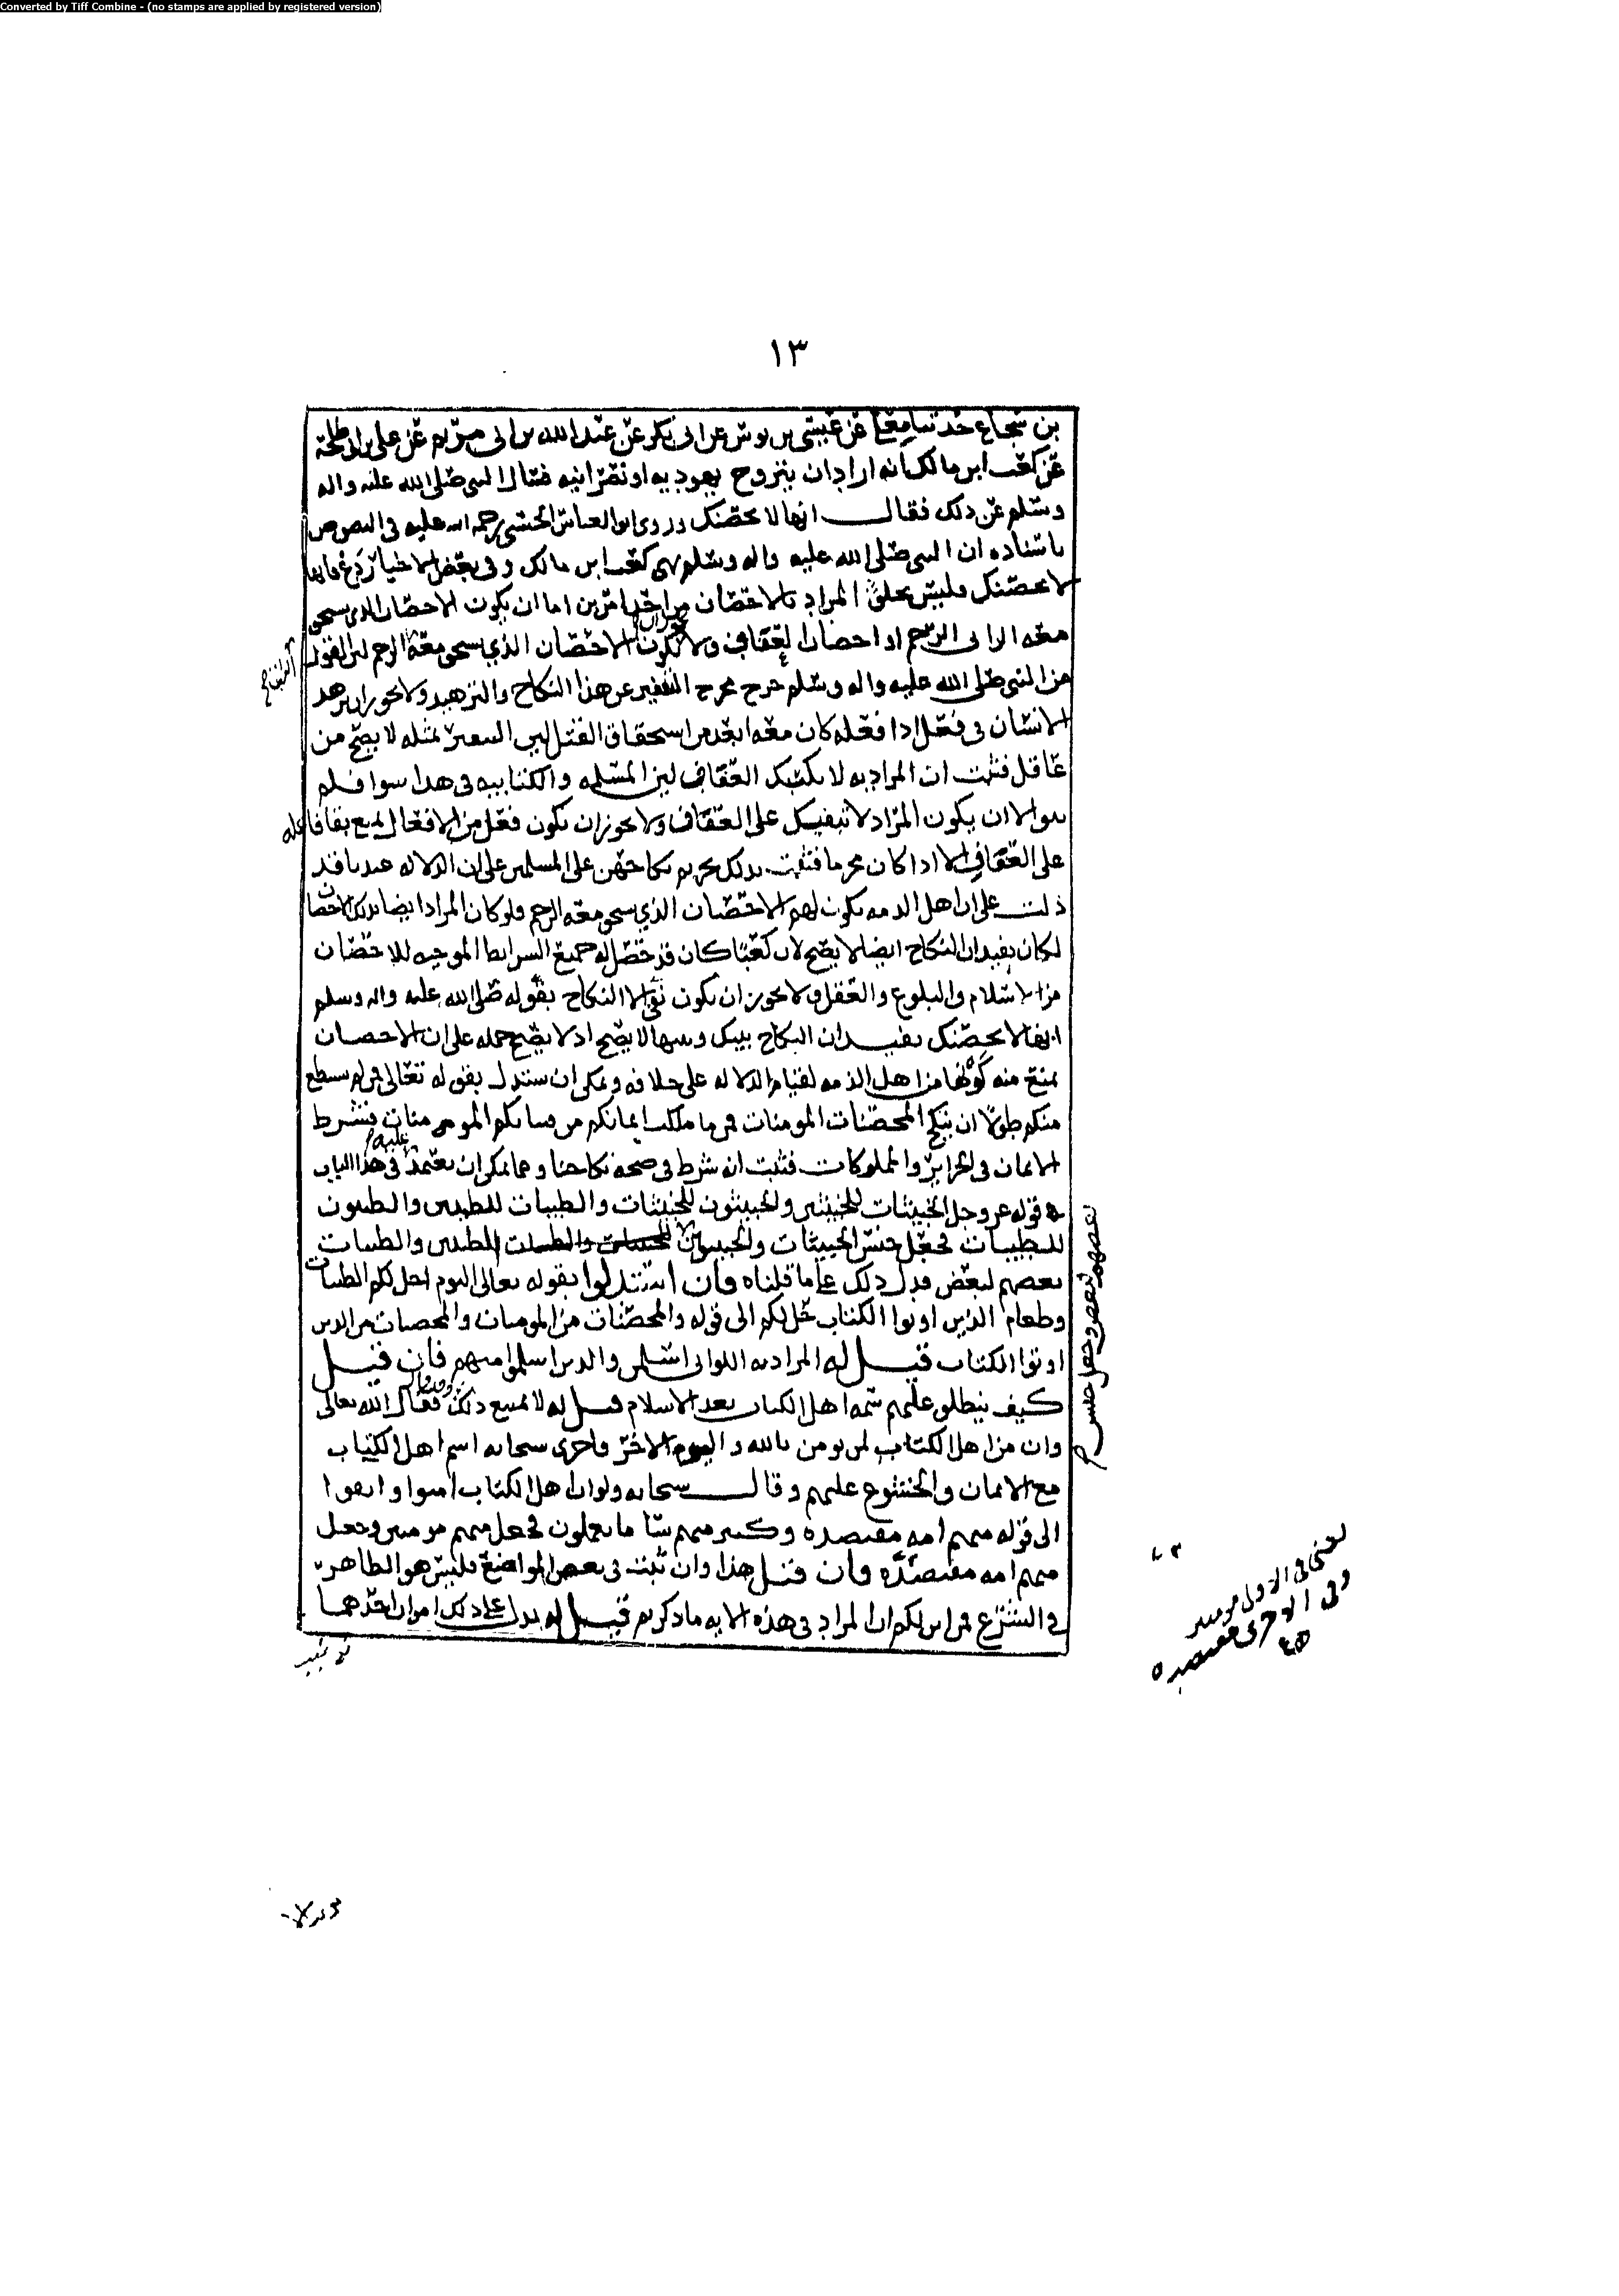 Converted by Tiff Combine - (no stamps are applied by registered version)
١٣
بن شجاع حدثنا معلى عن عيسى بن يونس عن ابى بكر عن عبد الله بن ابى مريم عن على بن ابى طلحة
عن كعب ابن مالك انه اراد ان يتزوج يهودية او نصرانية فسال النبى صلى الله عليه واله
وسلم عن ذلك فقال انها لا تحصنك وروى ابو العباس الحسنى رحمة الله عليه فى النصوص
باسناده ان النبى صلى الله عليه واله وسلم نهى كعب ابن مالك وفى بعض الاخبار دعها فانها
لا تحصنك فليس يخلو المراد بالاحصان من احد امرين اما ان يكون الاحصان الذى يستحق
معه الزانى الرجم او احصان العفاف ولا يجوز ان يكون الاحصان الذي يستحق معه الرجم لان القول
من النبى صلى الله عليه واله وسلم خرج مخرج التنفير عن هذا النكاح والتزهيد ولا يجوز ان يزهد
الانسان فى فعل اذا فعله كان معه ابعد من استحقاق القتل لان التنفير بمثله لا يصح من
عاقل فثبت ان المراد به لا يكسبك العفاف لان المسلمه والكتابيه فى هذا سوا فلم
يبق الا ان يكون المراد لا تبقيك على العفاف ولا يجوز ان يكون فعل من الافعال يمنع بقا فاعله
على العفاف الا اذا كان محرما فثبت بذلك تحريم نكاحهن على المسلمين على ان الدلاله عندنا قد
دلت على ان اهل الذمه يكون لهم الاحصان الذي يستحق معه الرجم فلو كان المراد ايضا بذلك الاحصان
لكان يفيد ان النكاح ايضا لا يصح لان كعبا كان قد حصل له جميع الشرايط الموجبه للاحصان
من الاسلام والبلوغ والعقل ولا يجوز ان يكون بقى الا النكاح فقوله صلى الله عليه واله وسلم
انها لا تحصنك يفيد ان النكاح بينك وبينها لا يصح اذ لا يصح حمله على ان الاحصان
يمنع منه كونها من اهل الذمه لقيام الدلاله على خلافه ويمكن ان يستدل بقوله تعالى فمن لم يستطع
منكم طولا ان ينكح المحصنات المومنات فمن ما ملكت ايمانكم من فتياتكم المومنات فشرط
الايمان فى الحراير والمملوكات فثبت انه شرط فى صحة نكاحنا ومما يمكن ان يعتمد عليه فى هذا الباب
قوله عز وجل الخبيثات للخبيثين والخبيثون للخبيثات والطيبات للطيبين والطيبون
للطيبات فجعل جنس الخبيثات والخبيثين للطيبين والطيبات
بعضهم لبعض وجعل جنس
بعضهم لبعض فدل ذلك على ما قلناه فان استدلوا بقوله تعالى اليوم احل لكم الطيبات
وطعام الذين اوتوا الكتاب حل لكم الى قوله والمحصنات من المومنات والمحصنات من الذين
اوتوا الكتاب قيل له المراد به اللواتى اسلمن والذين اسلموا منهم فان قيل
كيف ينطلق عليهم سمة اهل الكتاب بعد الاسلام قيل له لا يمتنع ذلك فقال الله تعالى
وان من اهل الكتاب لمن يومن بالله واليوم الاخر فاجرى سبحانه اسم اهل الكتاب
مع الايمان والخشوع عليهم وقال سبحانه ولو ان اهل الكتاب امنوا واتقوا
الى قوله منهم امه مقتصده وكثير منهم سا ما يعملون فجعل منهم مومنين وجعل
منهم امه مقتصده فان قيل هذا وان ثبت فى بعض المواضع فليس هو الظاهر
فى الشرع فمن اين لكم ان المراد فى هذه الايه ما ذكرتم قيل له يدل على ذلك امران احدهما
يعنى فى الاول مومنين
وفى الاخرى مقتصده